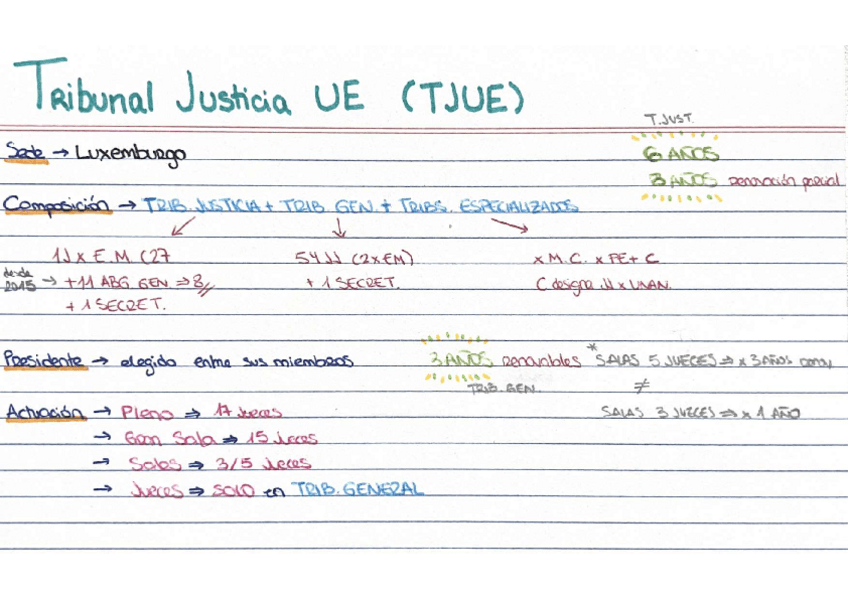 Tribunal Justicia UE (TJUE)
T. JUST.
Sede → Luxemburgo
6 AÑOS
3 AÑOS renovación parcial
Composición → TRIB. JUSTICIA + TRIB. GEN. + TRIBS. ESPECIALIZADOS
1J x E.M. (27
54 JJ (2xEM)
x M.C. x PE + C
desde 2015 → +11 ABG. GEN. ⇒ 8
+ 1 SECRET.
C designa JJ x UNAN.
+ 1 SECRET.
Presidente → elegido entre sus miembros
3 AÑOS renovables
TRIB. GEN.
* SALAS 5 JUECES ⇒ x 3 AÑOS
≠
SALAS 3 JUECES ⇒ x 1 AÑO
Actuación → Pleno ⇒ 17 jueces
→ Gran Sala ⇒ 15 jueces
→ Salas ⇒ 3/5 jueces
→ Jueces ⇒ SOLO en TRIB. GENERAL